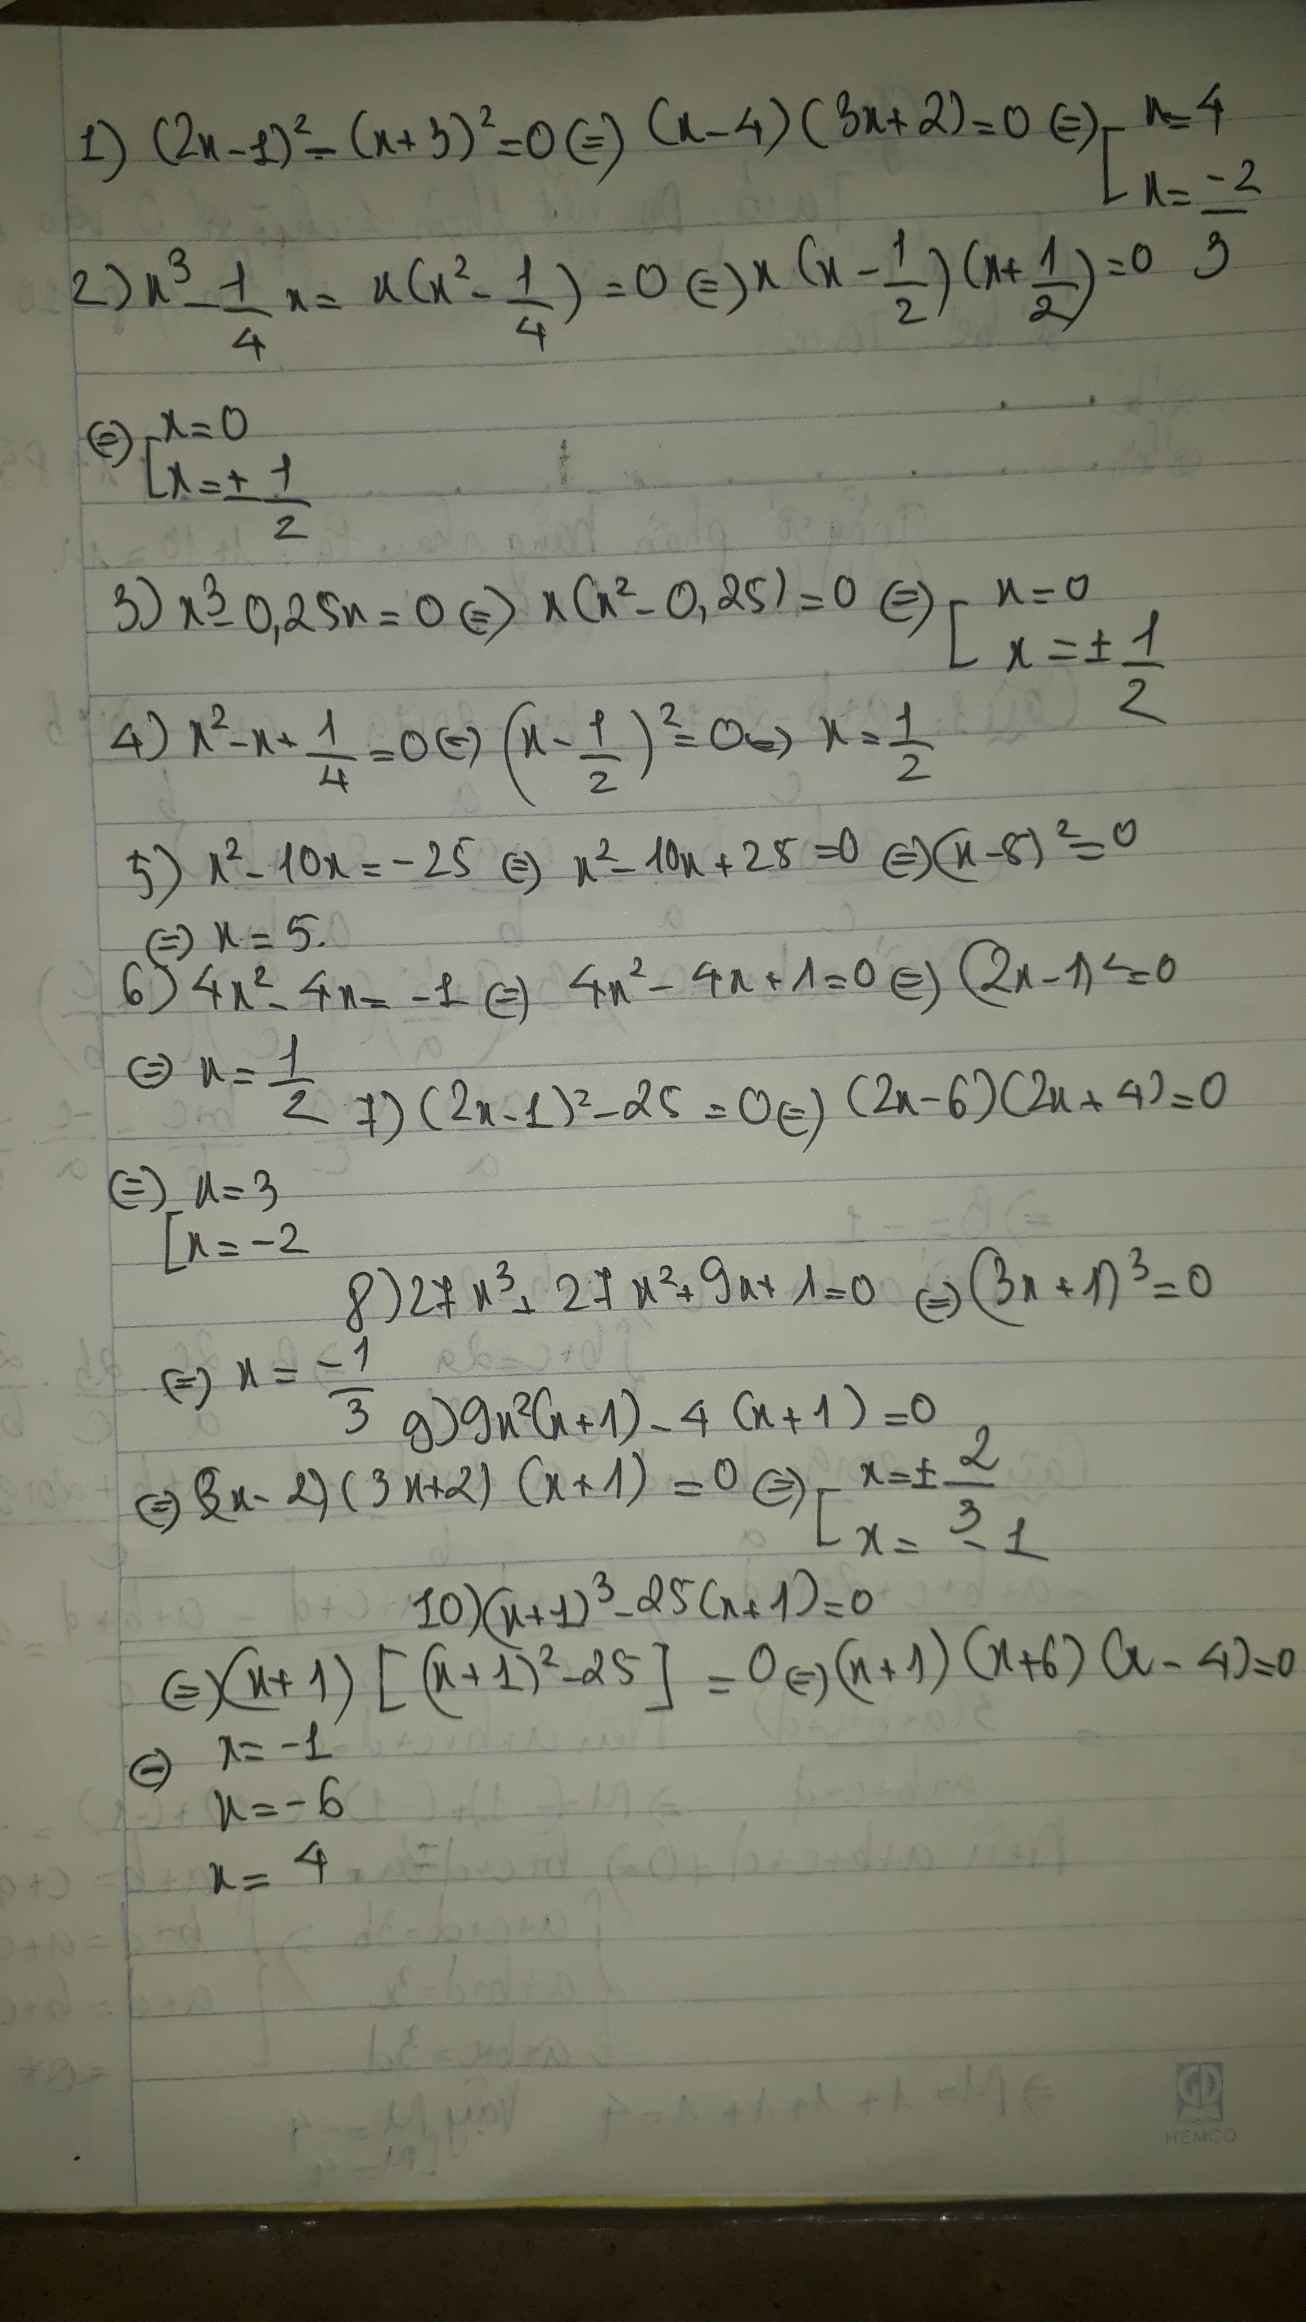 1) (2x-1)² - (x+3)² = 0 ⇔ (x-4)(3x+2) = 0 ⇔ [ x = 4
x = -2/3
2) x³ - 1/4 x = x(x² - 1/4) = 0 ⇔ x(x - 1/2)(x + 1/2) = 0
⇔ [ x = 0
x = ± 1/2
3) x³ - 0,25x = 0 ⇔ x(x² - 0,25) = 0 ⇔ [ x = 0
x = ± 1/2
4) x² - x + 1/4 = 0 ⇔ (x - 1/2)² = 0 ⇔ x = 1/2
5) x² - 10x = -25 ⇔ x² - 10x + 25 = 0 ⇔ (x-5)² = 0
⇔ x = 5.
6) 4x² - 4x = -1 ⇔ 4x² - 4x + 1 = 0 ⇔ (2x-1)² = 0
⇔ x = 1/2
7) (2x-1)² - 25 = 0 ⇔ (2x-6)(2x+4) = 0
⇔ [ x = 3
x = -2
8) 27x³ + 27x² + 9x + 1 = 0 ⇔ (3x+1)³ = 0
⇔ x = -1/3
9) 9x²(x+1) - 4(x+1) = 0
⇔ (3x-2)(3x+2)(x+1) = 0 ⇔ [ x = ± 2/3
x = -1
10) (x+1)³ - 25(x+1) = 0
⇔ (x+1)[(x+1)² - 25] = 0 ⇔ (x+1)(x+6)(x-4) = 0
⇔ x = -1
x = -6
x = 4
GD
HEMCO